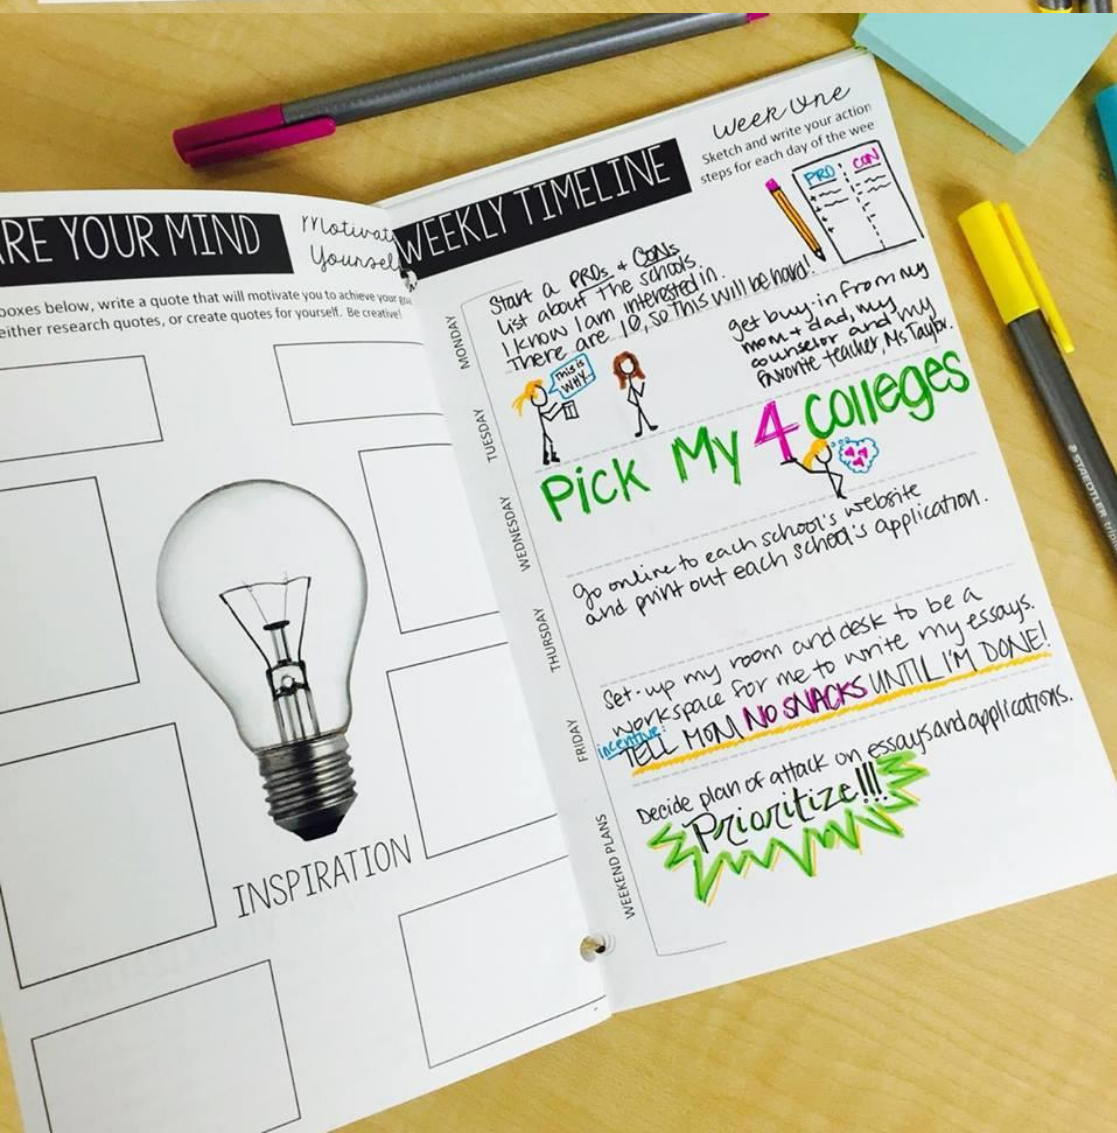 RE YOUR MIND
Motivat
Yoursel
boxes below, write a quote that will motivate you to achieve your
either research quotes, or create quotes for yourself. Be creative!
INSPIRATION
WEEKLY TIMELINE
Week One
Sketch and write your action
steps for each day of the wee
PRO CON
MONDAY
Start a PROs + CONs
list about the schools
I know I am interested in.
There are 10, so this will be hard!
TUESDAY
get buy-in from my
mom + dad, my
counselor and my
favorite teacher, Ms Taylor.
THIS IS
WHY...
WEDNESDAY
Pick My 4 Colleges
THURSDAY
go online to each school's website
and print out each school's application.
FRIDAY
Set-up my room and desk to be a
workspace for me to write my essays.
incentive:
TELL MOM NO SNACKS UNTIL I'M DONE!
WEEKEND PLANS
Decide plan of attack on essays and applications.
Prioritize!!!
STAEDTLER